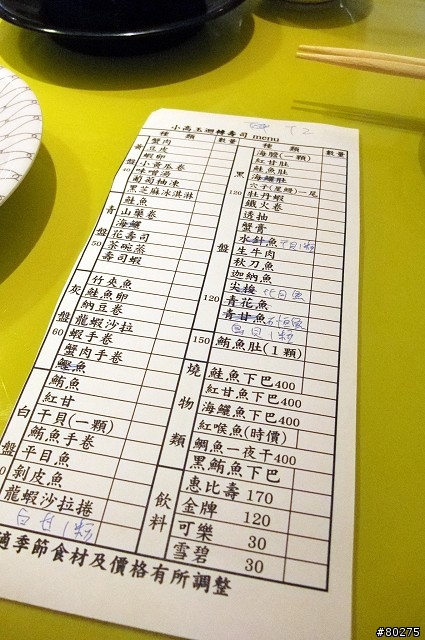 小高玉迴轉壽司 menu
種類 數量
黃盤40
蟹肉
豆皮
蝦卵
小黃瓜卷
味噌湯
葡萄柚凍
黑芝麻冰淇淋
青盤50
鮭魚
山藥卷
海鱺
花壽司
茶碗蒸
壽司蝦
灰盤60
竹夾魚
鮭魚卵
納豆卷
龍蝦沙拉
蝦手卷
蟹肉手卷
鰹魚
白盤
鮪魚
紅甘
干貝(一顆)
鮪魚手卷
平目魚
剝皮魚
龍蝦沙拉捲
種類 數量
黑盤120
海膽(一顆)
紅甘肚
鮭魚肚
海鱺肚
穴子(星鰻)一尾
牡丹蝦
鐵火卷
透抽
蟹膏
水針魚
生牛肉
秋刀魚
迦納魚
120
青花魚
青甘魚
150 鮪魚肚(1顆)
燒物類
鮭魚下巴400
紅甘魚下巴400
海鱺魚下巴400
紅喉魚(時價)
鯛魚一夜干400
黑鮪魚下巴
飲料
惠比壽 170
金牌 120
可樂 30
雪碧 30
適季節食材及價格有所調整
#80275